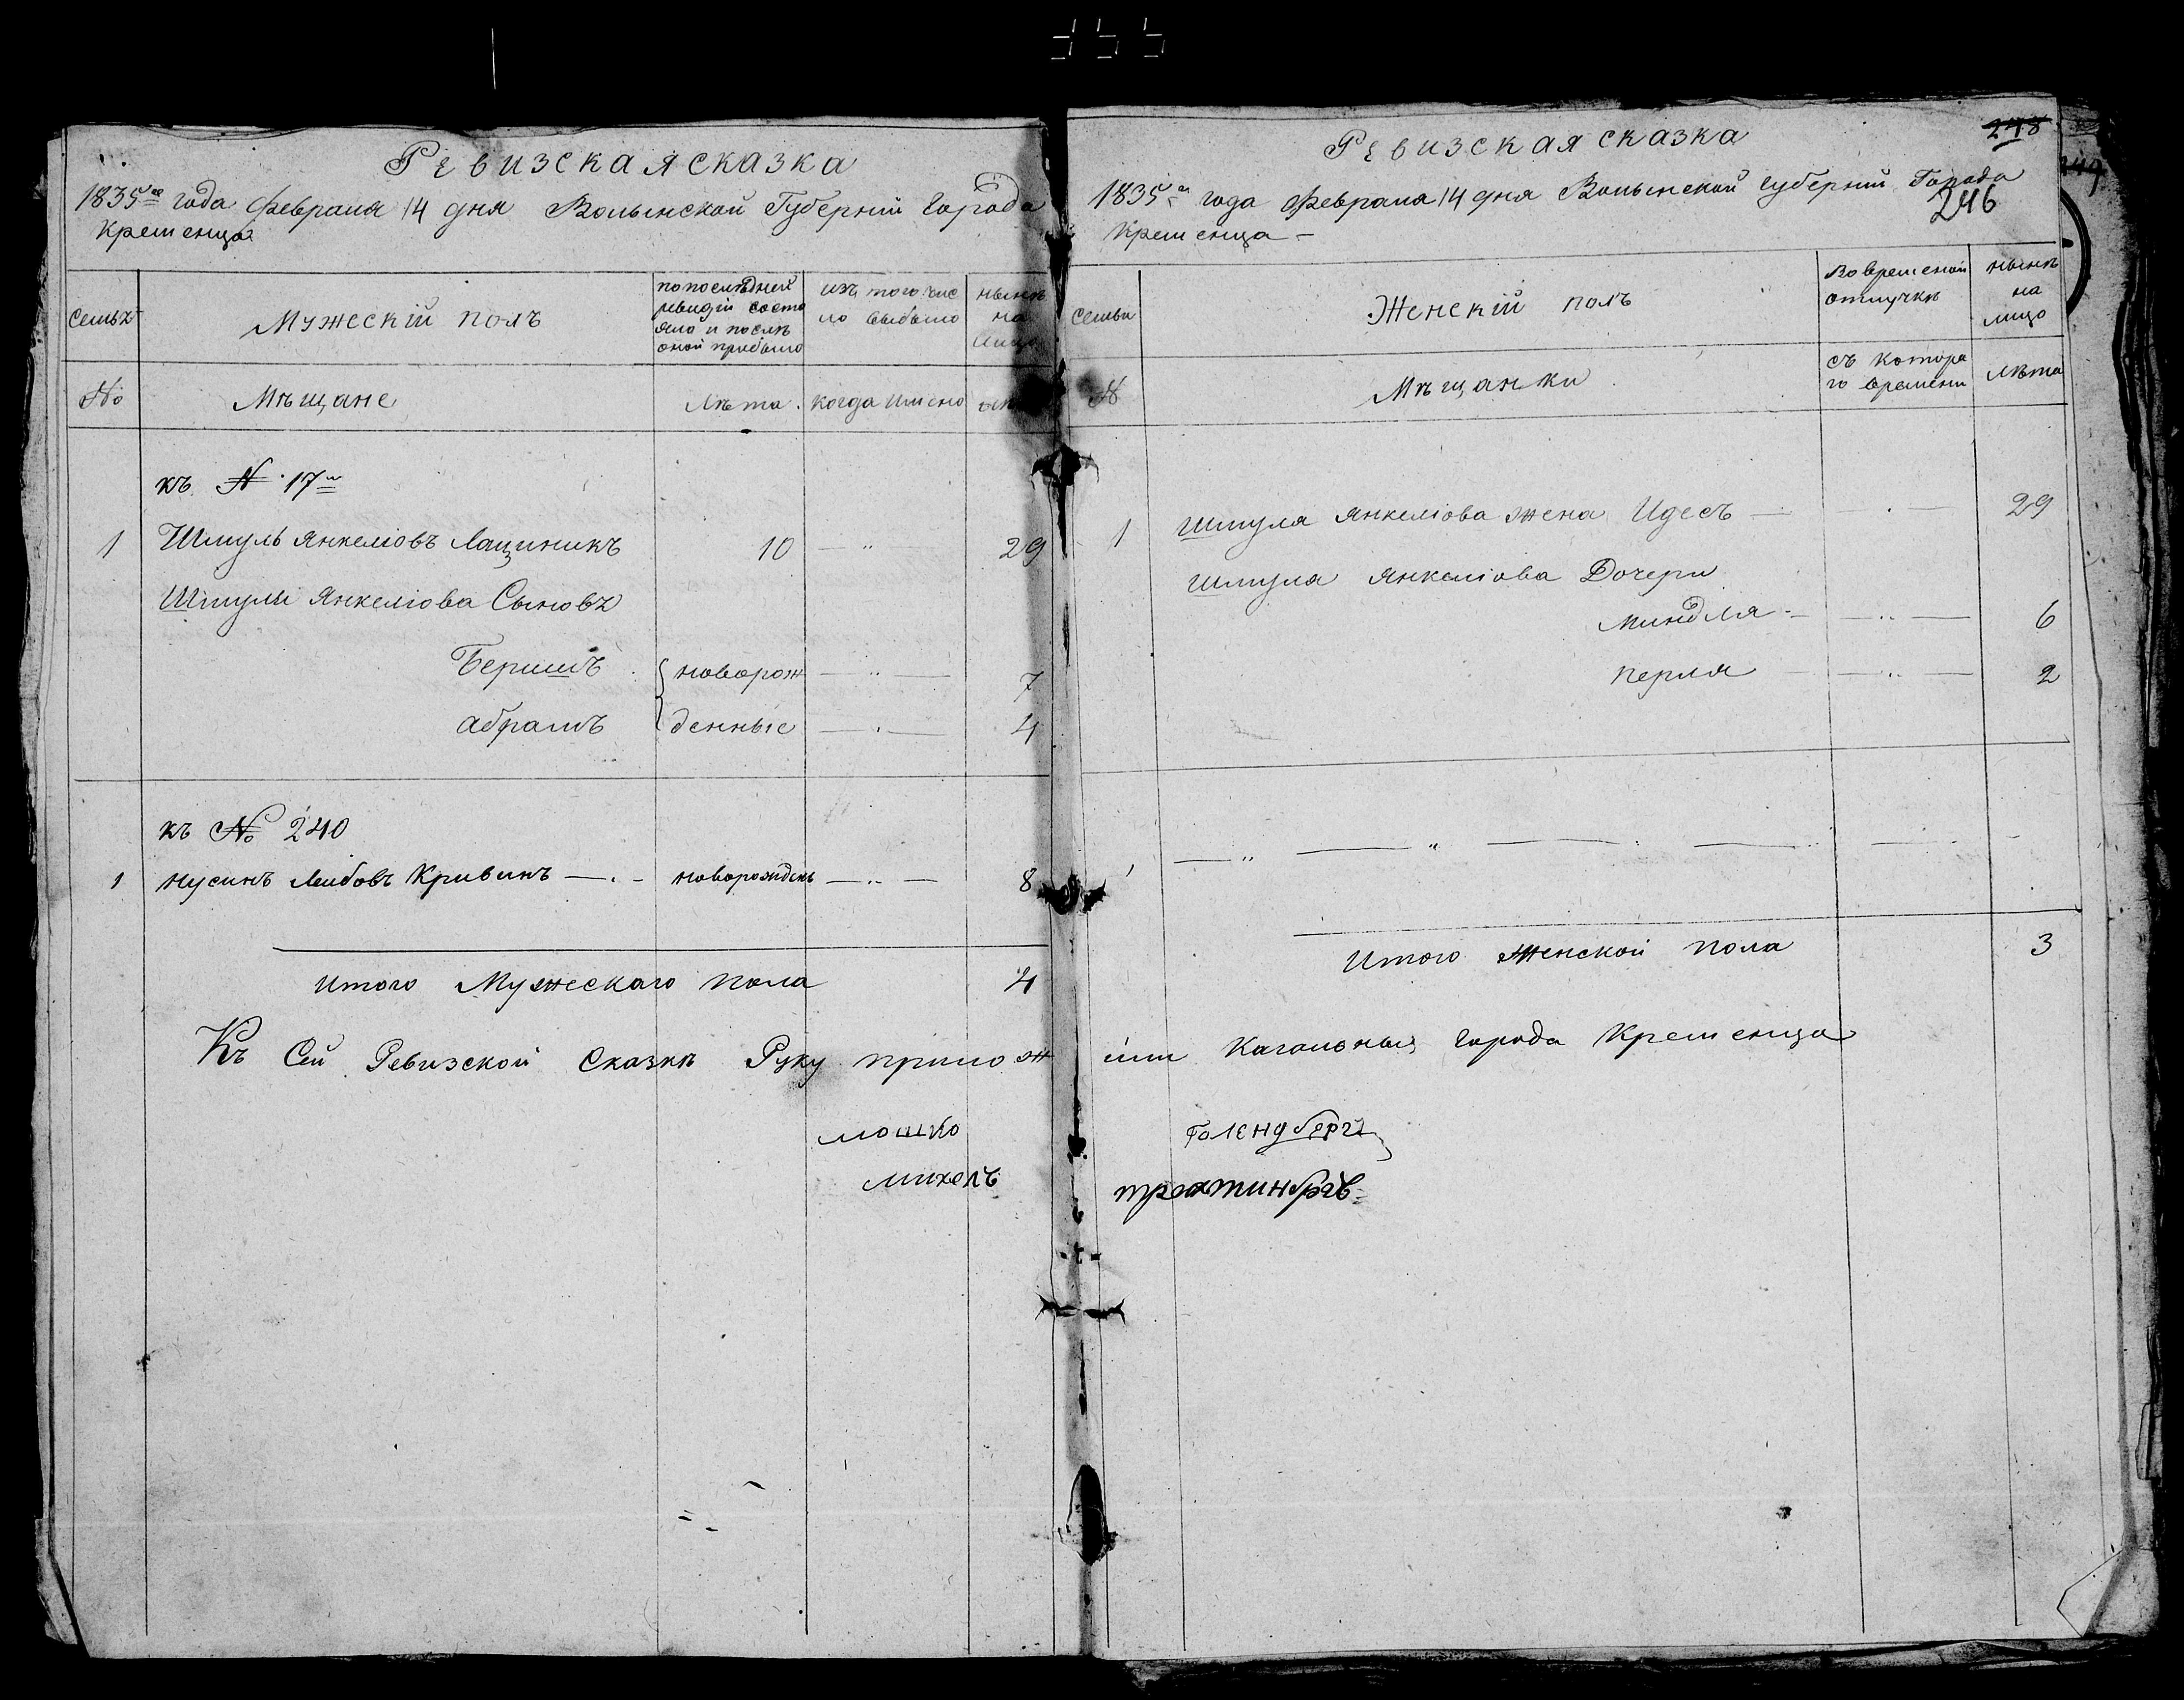 Ревизская сказка
1835го года февраля 14 дня Волынской Губерніи Города
Кременца
семья
Мужескій полъ
попоследней
ревизіи состо
яло и после
оной прибыло
изъ того чис
ло выбыло
ныне
на
лицо
№
Мѣщане
Лѣта
когда имено
къ № 17й
1 Шмуль Янкеліовъ Лащиникъ 10 — " 29
Шмуля Янкеліова Сыновъ
Беришъ { новорож — " — 7
Абрамъ { денные — " — 4
къ № 240
1 Нусинъ Лейбовъ Кривинъ — новорожденъ — " — 8
Итого Мужескаго пола 4
Къ Сей Ревизской Сказкѣ Руку прилож
мошко
михелъ
248
246
Ревизская сказка
1835го года Февраля 14 дня Волынской Губерніи Города
Кременца —
семьи
Женскій полъ
Во временой
отлучкѣ
нынѣ
на
лицо
№
Мѣщанки
съ котора
го времени
Лѣта
1 Шмуля Янкеліова жена Идесъ — 29
Шмуля Янкеліова Дочери
Миндля — " — 6
Перля — " — 2
Итого Женской пола 3
или Кагальныя Города Кременца
Голендбергъ
трахтинбргъ